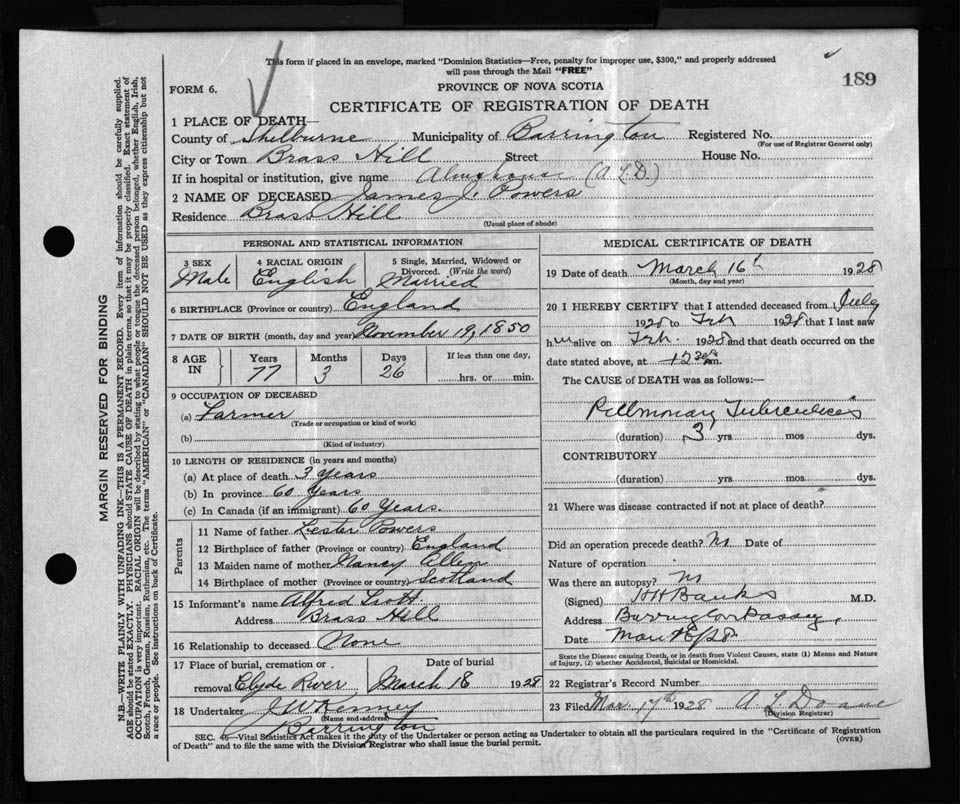 This form if placed in an envelope, marked "Dominion Statistics—Free, penalty for improper use, $300," and properly addressed
will pass through the Mail "FREE"
189
FORM 6.
PROVINCE OF NOVA SCOTIA
CERTIFICATE OF REGISTRATION OF DEATH
1 PLACE OF DEATH—
County of Shelburne Municipality of Barrington Registered No.
(For use of Registrar General only)
City or Town Brass Hill Street House No.
If in hospital or institution, give name Almshouse (A.L.D.)
2 NAME OF DECEASED James J. Powers
Residence Brass Hill
(Usual place of abode)
PERSONAL AND STATISTICAL INFORMATION
3 SEX Male
4 RACIAL ORIGIN English
5 Single, Married, Widowed or Divorced. (Write the word) Married
6 BIRTHPLACE (Province or country) England
7 DATE OF BIRTH (month, day and year) November 19, 1850
8 AGE IN Years 77 Months 3 Days 26 If less than one day, hrs. or min.
9 OCCUPATION OF DECEASED
(a) Farmer
(Trade or occupation or kind of work)
(b)
(Kind of industry)
10 LENGTH OF RESIDENCE (in years and months)
(a) At place of death 3 years
(b) In province 60 Years
(c) In Canada (if an immigrant) 60 Years.
Parents
11 Name of father Lester Powers
12 Birthplace of father (Province or country) England
13 Maiden name of mother Nancy Allen
14 Birthplace of mother (Province or country) Scotland
15 Informant's name Alfred Scott
Address Brass Hill
16 Relationship to deceased None
17 Place of burial, cremation or removal Clyde River
Date of burial March 18 1928
18 Undertaker J W Kenney
(Name and address)
Barrington
MEDICAL CERTIFICATE OF DEATH
19 Date of death March 16 1928
(Month, day and year)
20 I HEREBY CERTIFY that I attended deceased from July
1928 to Feb 1928 that I last saw
h alive on Feb. 1928 and that death occurred on the
date stated above, at 12 m.
The CAUSE OF DEATH was as follows:—
Pulmonary Tuberculosis
(duration) 3 yrs mos dys.
CONTRIBUTORY
(duration) yrs. mos. dys.
21 Where was disease contracted if not at place of death?
Did an operation precede death? No Date of
Nature of operation
Was there an autopsy? No
(Signed) H H Banks M.D.
Address Barrington Passage
Date
State the Disease causing Death, or in death from Violent Causes, state (1) Means and Nature
of Injury, (2) whether Accidental, Suicidal or Homicidal.
22 Registrar's Record Number
23 Filed Mar. 17th 1928 A L Doane
(Division Registrar)
SEC. 46—Vital Statistics Act makes it the duty of the Undertaker or person acting as Undertaker to obtain all the particulars required in the "Certificate of Registration
of Death" and to file the same with the Division Registrar who shall issue the burial permit.
(OVER)
MARGIN RESERVED FOR BINDING
N.B.—WRITE PLAINLY WITH UNFADING INK—THIS IS A PERMANENT RECORD. Every item of information should be carefully supplied.
AGE should be stated EXACTLY. PHYSICIANS should STATE CAUSE OF DEATH in plain terms, so that it may be properly classified. Exact statement of
OCCUPATION is very important. RACIAL ORIGIN will be described by stating to what people or tongue the deceased person belonged, whether English, Irish,
Scotch, French, German, Russian, Ruthenian, etc. The terms "AMERICAN" or "CANADIAN" SHOULD NOT BE USED as they express citizenship but not
a race or people. See instructions on back of Certificate.